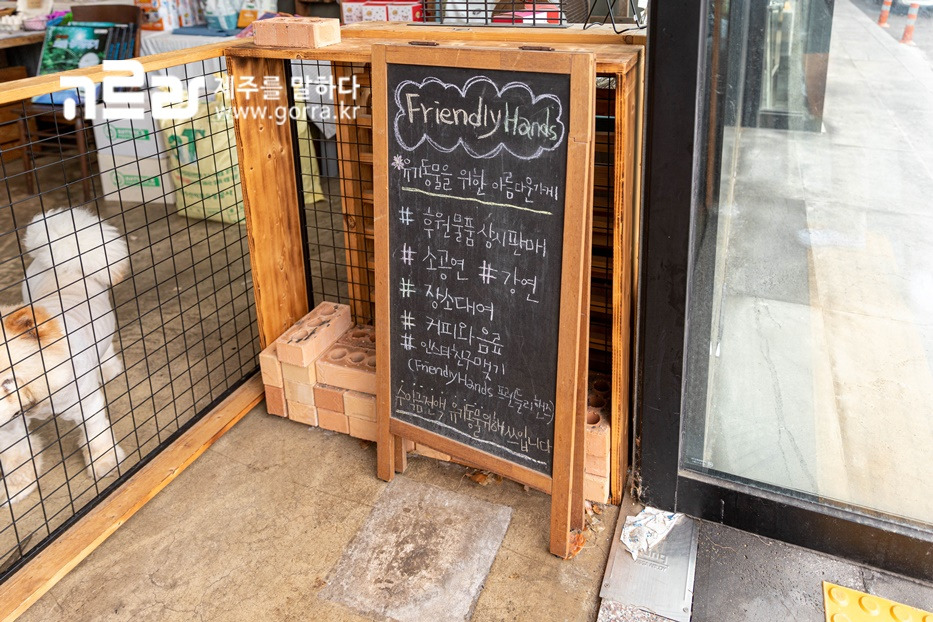 고르라 제주를 말하다
www.gorra.kr
FriendlyHands
유기동물을 위한 아름다운가게
# 후원물품 상시판매
# 소공연 # 강연
# 장소대여
# 커피와음료
# 인스타친구맺기
(FriendlyHands 프렌들리핸즈)
수익금전액 유기동물위해쓰입니다